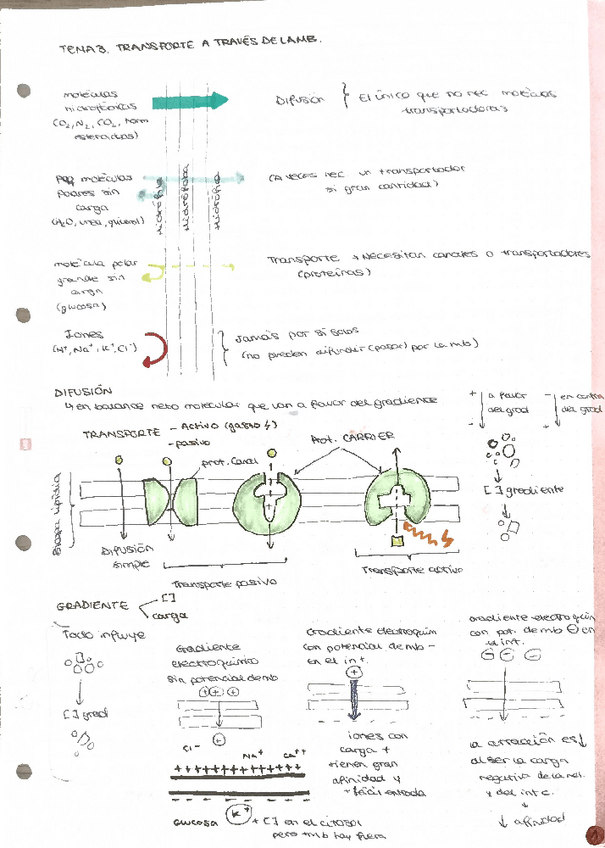 TEMA 3. TRANSPORTE A TRAVÉS DE LA MB.
moléculas
hidrofóbicas
(O2, N2, CO2, horm
esteroideas)
Difusión } El único que no nec moléculas
transportadoras
peq moléculas
polares sin
carga
(H2O, urea, glicerol)
(A veces nec un transportador
si gran cantidad)
Hidrófila
Hidrófoba
Hidrófila
molécula polar
grande sin
carga
(glucosa)
Transporte → Necesitan canales o transportadores
(proteínas)
Iones
(H+, Na+, K+, Cl-)
Jamás por si solos
(no pueden difundir (pasar) por la mb)
DIFUSIÓN
↳ en balance neto molecular que van a favor del gradiente
+ a favor
del grad
-
- en contra
del grad
+
TRANSPORTE - Activo (gasto ϟ)
- pasivo
prot. canal
Prot. CARRIER
[ ] gradiente
Bicapa lipídica
Difusión
simple
Transporte pasivo
Transporte activo
GRADIENTE
[ ]
carga
Todo influye
[ ] grad
Gradiente
electroquímico
sin potencial de mb
+ + +
+
Gradiente electroquím
con potencial de mb -
en el int.
+
iones con
carga +
tienen gran
afinidad y
+ fácil entrada
Gradiente electroquím
con pot. de mb ⊖ en
el int.
- - -
la atracción es ↓
al ser la carga
negativa de la mol.
y del int c.
↓ afinidad
Cl-
Na+
Ca++
+++++++++++++
Glucosa
K+
+ [ ] en el citosol
pero tmb hay fuera
1